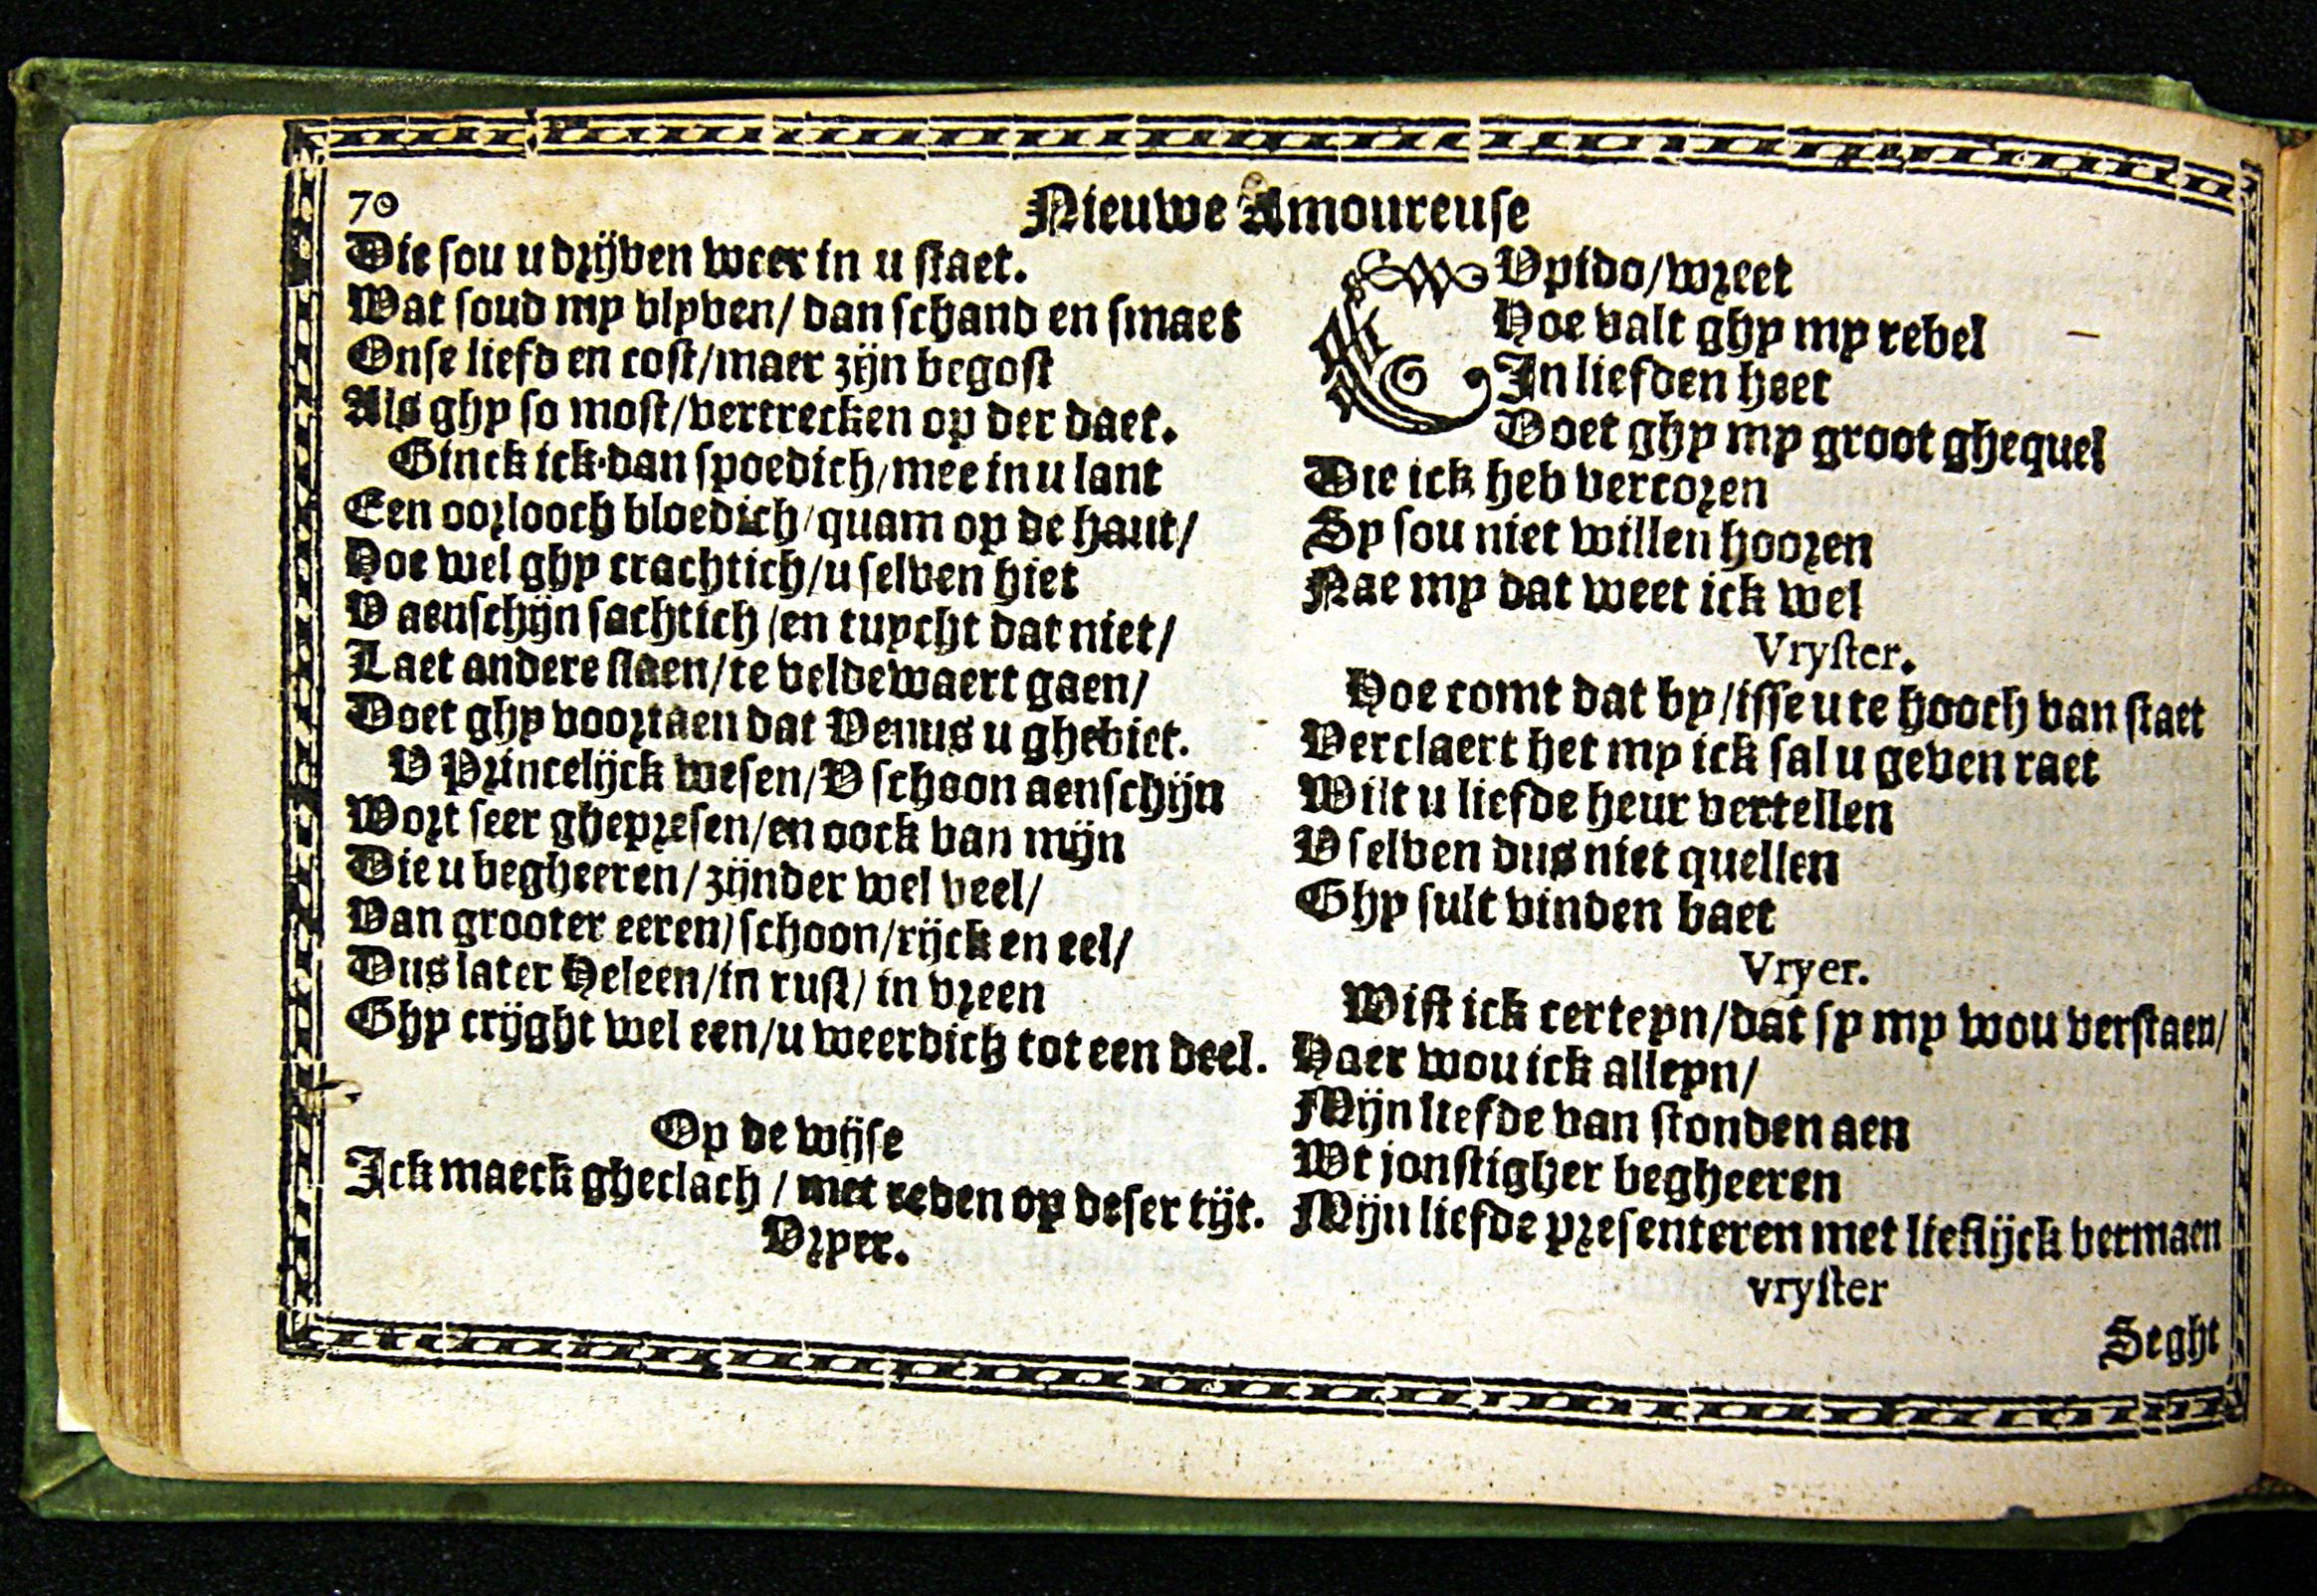 70
Nieuwe Amoureuse
Die sou u drijven weer in u staet.
Wat soud my blyven/ dan schand en smaet
Onse liefd en cost/maer zijn begost
Als ghy so most/vertrecken op der daet.
Ginck ick dan spoedich/mee in u lant
Een oorlooch bloedich/quam op de hant/
Hoe wel ghy crachtich/u selven hiet
V aenschijn sachtich/en tuycht dat niet/
Laet andere slaen/te veldewaert gaen/
Doet ghy voortaen dat Venus u ghebiet.
V Princelijck wesen/V schoon aenschijn
Wort seer ghepresen/en oock van mijn
Die u begheeren/zijnder wel veel/
Van grooter eeren/schoon/rijck en eel/
Dus later Heleen/in rust/in vreen
Ghy crijght wel een/u weerdich tot een deel.
Op de wijse
Ick maeck gheclach / met reden op deser tijt.
Vryer.
CVpido/wreet
Hoe valt ghy my rebel
In liefden heet
Doet ghy my groot ghequel
Die ick heb vercoren
Sy sou niet willen hooren
Nae my dat weet ick wel
Vryster.
Hoe comt dat by/isse u te hooch van staet
Verclaert het my ick sal u geven raet
Wilt u liefde heur vertellen
V selven dus niet quellen
Ghy sult vinden baet
Vryer.
Wist ick certeyn/dat sy my wou verstaen/
Haer wou ick alleyn/
Mijn liefde van stonden aen
Wt jonstigher begheeren
Mijn liefde presenteren met lieflijck vermaen
vryster
Seght